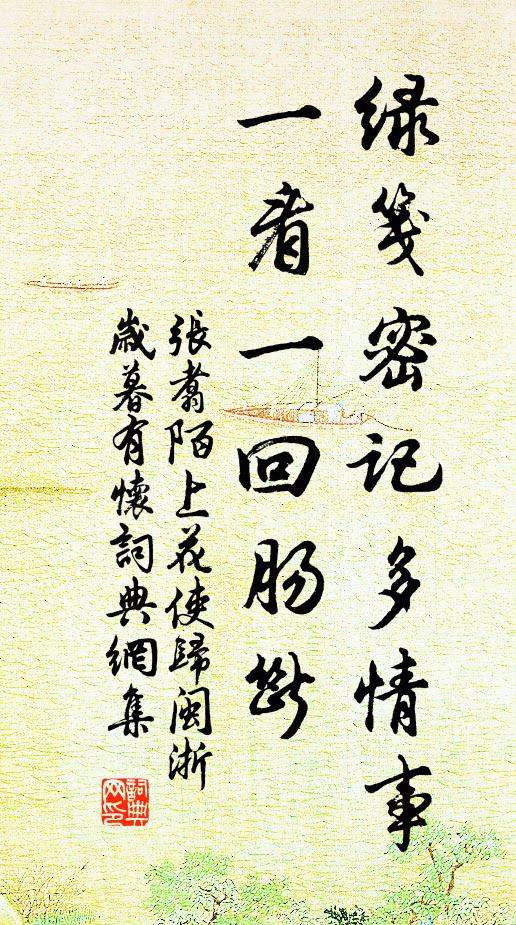 绿笺密记多情事
一看一回肠断
張翥陌上花使歸閩浙
歲暮有懷詞典網集
詞典
网印